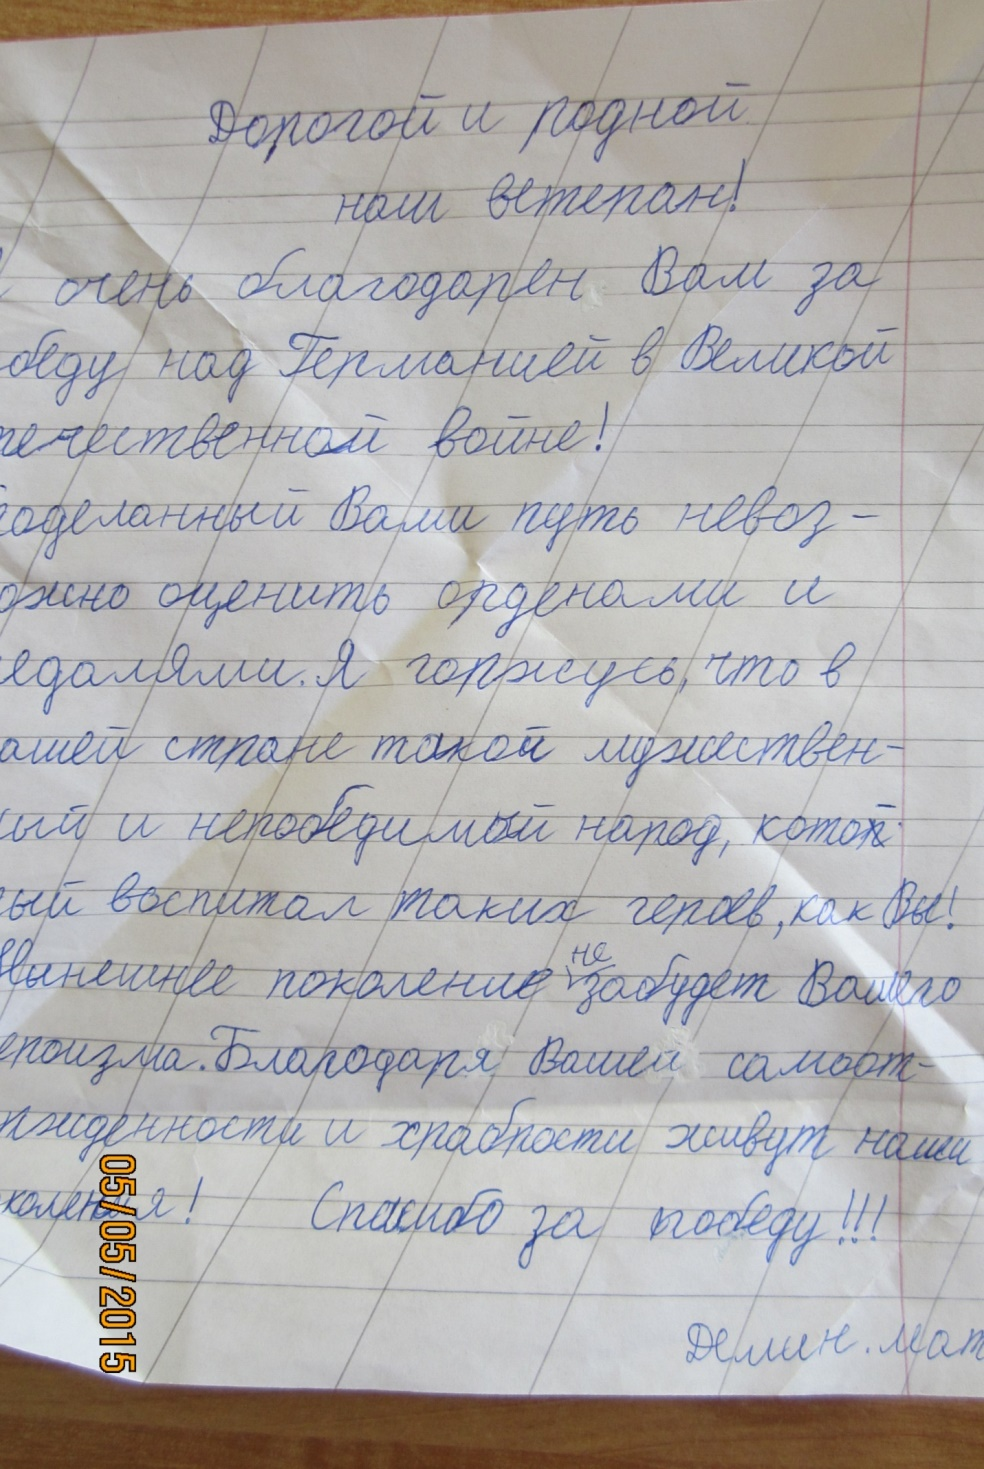 Дорогой и родной
наш ветеран!
очень благодарен Вам за
обеду над Германией в Великой
течественной войне!
роделанный Вами путь невоз-
ожно оценить орденами и
едалями. Я горжусь, что в
ашей стране такой мужествен-
ный и непобедимый народ, котор
рый воспитал таких героев, как Вы!
Нынешнее поколение не забудет Вашего
ероизма. Благодаря Вашей самоот-
ржденности и храбрости живут наши
коления! Спасибо за победу!!!
Демин. Мат
05/05/2015